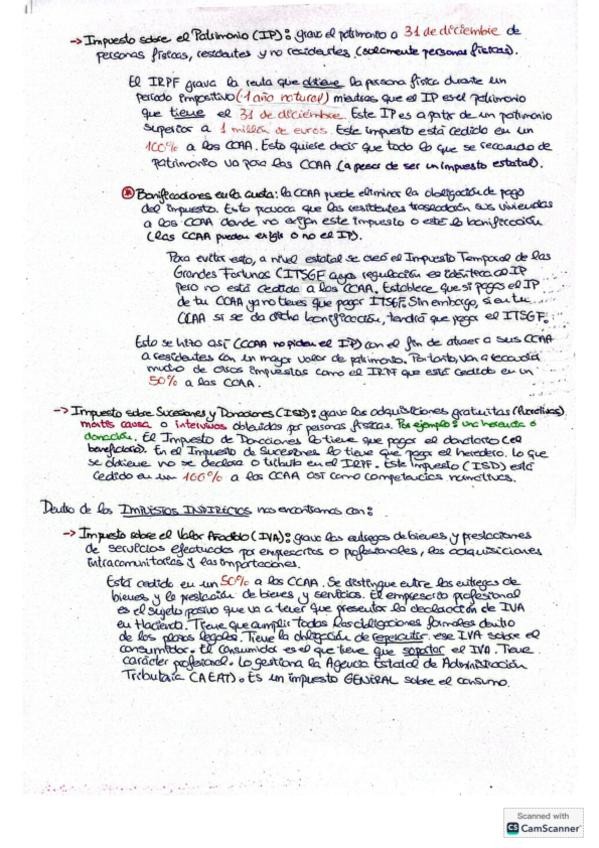 → Impuesto sobre el Patrimonio (IP): grava el patrimonio a 31 de diciembre de
personas físicas, residentes y no residentes (solamente personas físicas).
El IRPF grava la renta que obtiene la persona física durante un
periodo impositivo (1 año natural) mientras que el IP es el patrimonio
que tiene el 31 de diciembre. Este IP es a partir de un patrimonio
superior a 1 millón de euros. Este impuesto está cedido en un
100% a las CCAA. Esto quiere decir que todo lo que se recauda de
Patrimonio va para las CCAA (a pesar de ser un impuesto estatal).
Bonificaciones en la cuota: la CCAA puede eliminar la obligación de pago
del impuesto. Esto provoca que los residentes trasladarán sus viviendas
a las CCAA donde no exijan este impuesto o esté la bonificación
(las CCAA pueden exigir o no el IP).
Para evitar esto, a nivel estatal se creó el Impuesto Temporal de las
Grandes Fortunas (ITSGF cuya regulación es idéntica al IP
pero no está cedido a las CCAA. Establece que si pagas el IP
de tu CCAA ya no tienes que pagar ITSGF. Sin embargo, si en tu
CCAA si se da dicha bonificación, tendrá que pagar el ITSGF.
Esto se hizo así (CCAA no piden el IP) con el fin de atraer a sus CCAA
a residentes con un mayor valor de patrimonio. Por tanto, van a recaudar
mucho de otros impuestos como el IRPF que está cedido en un
50% a las CCAA.
→ Impuesto sobre Sucesiones y Donaciones (ISD): grava las adquisiciones gratuitas (lucrativas)
mortis causa o intervivos obtenidas por personas físicas. Por ejemplo: una herencia o
donación. El Impuesto de Donaciones lo tiene que pagar el donatario (el
beneficiario). En el Impuesto de Sucesiones lo tiene que pagar el heredero. Lo que
se obtiene no se declara o tributa en el IRPF. Este impuesto (ISD) está
cedido en un 100% a las CCAA así como competencias normativas.
Dentro de los IMPUESTOS INDIRECTOS nos encontramos con:
→ Impuesto sobre el Valor Añadido (IVA): grava las entregas de bienes y prestaciones
de servicios efectuadas por empresarios o profesionales, las adquisiciones
intracomunitarias y las importaciones.
Está cedido en un 50% a las CCAA. Se distingue entre las entregas de
bienes y la prestación de bienes y servicios. El empresario profesional
es el sujeto pasivo que va a tener que presentar la declaración de IVA
en Hacienda. Tiene que cumplir todas las obligaciones formales dentro
de los plazos legales. Tiene la obligación de repercutir ese IVA sobre el
consumidor. El consumidor es el que tiene que soportar el IVA. Tiene
carácter profesional. Lo gestiona la Agencia Estatal de Administración
Tributaria (AEAT). Es un impuesto GENERAL sobre el consumo.
Scanned with
CS CamScanner